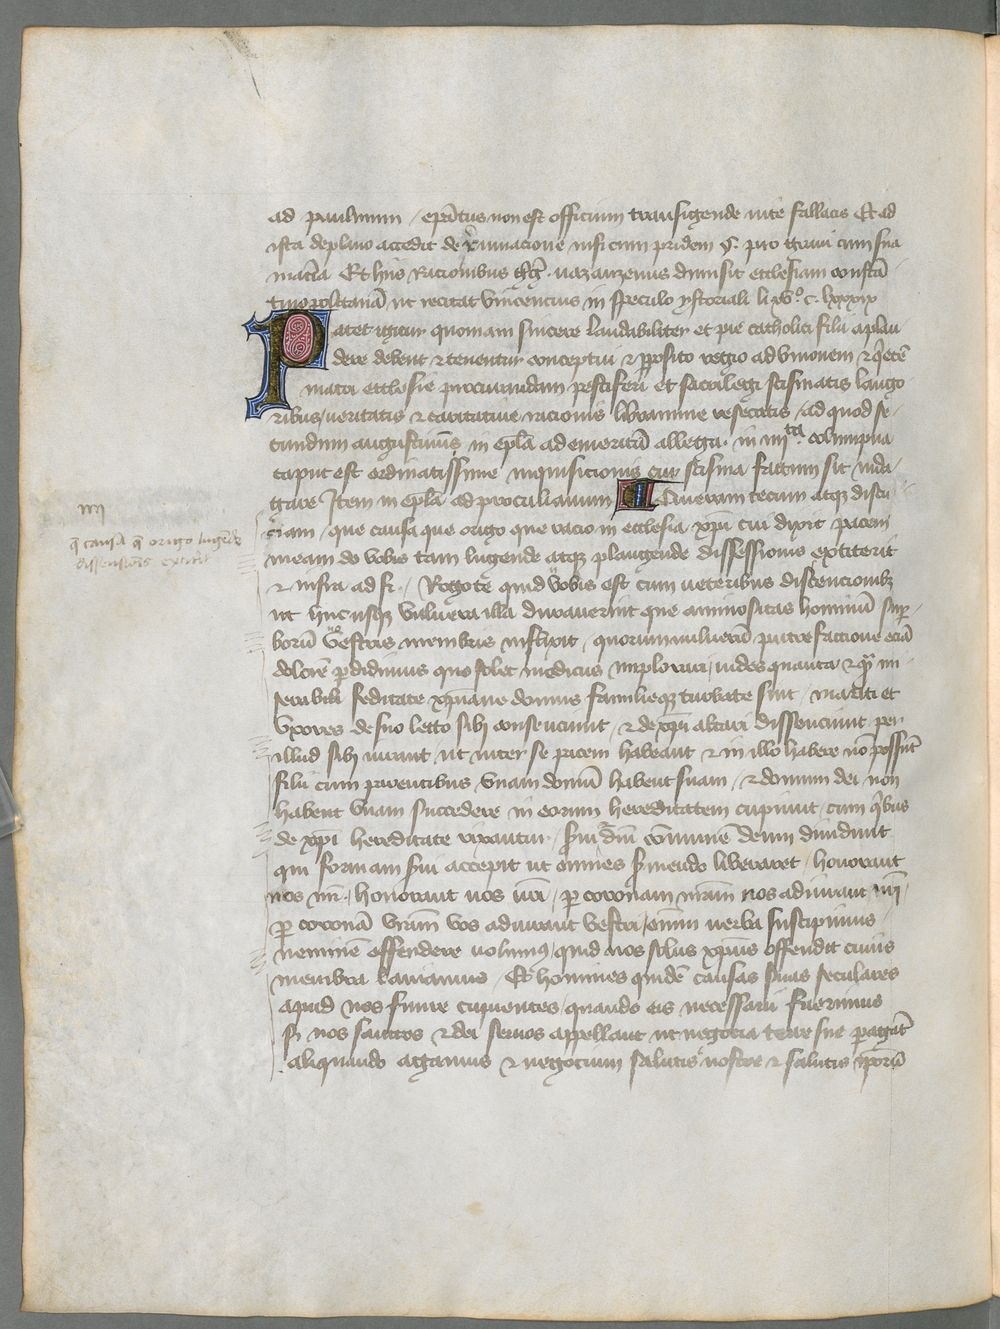 ad paulinum / epūtus non est officium transigende vite fallacis Et ad
ista de plano accedit de renunciacione nisi cum pridem S. pio thrani cum sua
mat̄ia Et hiis racionibus nazanzenus dimisit ecclesiam constā
tinopolitanā ut recitat vincencius in speculo ystoriali li xvͦ c. lxxxix
Patet igitur quoniam sincere laudabiliter et pie catholici filii aplau
dere debent ⁊ tenentur conceptui ⁊ p̱posito regio ad unionem ⁊ q̄etē
matri ecclesie procurandam pestiferi et sacrilegi scismatis lango
ribus / veritatis ⁊ caritative racionis libramine resecatis / ad quod se
cundum augustinū in ep̄la ad emeritū allega. in iiijta. columpna
caput est ordinatissime inquisicionis cur scisma factum sit inda
gare Item in ep̄la ad proculianum Queram tecum atqꝫ discu
ciam / que causa que origo que racio in ecclesia xp̄i cui dixit pacem
meam do vobis tam lugende atqꝫ plangende dissessionis extiterit
⁊ infra ad fi. / Rogo te quid vobis est cum veteribus discencionibꝫ
ut hucusqꝫ vulnera illa duraverint que animositas hominū sup̱
borū vestris membris inflixit / quorum vulnerū putrefaccione eciā
dolorē p̱didimus quo solet medicus implorari / vides quanta ⁊ q̄ mi
serabili feditate xp̄iane domus familieqꝫ turbate sint / mariti et
uxores de suo lecto sibi consenciunt / ⁊ de xp̄i altari dissenciunt per
illud sibi iurant ut inter se pacem habeant ⁊ in illo habere nō possūt
filii cum parentibus unam domū habent suam / ⁊ domum dei non
habent unam succedere in eorum hereditatem cupiunt / cum q̄bus
de xp̄i hereditate rixantur / S̄vi dn̄i cōmunē deum dividunt
qui formam s̄vi accepit ut omnes s̄viendo liberaret / honorant
nos n̄ri / honorant nos v̄ri / p̱ coronam n̄ram nos adiurant v̄ri /
p̱ coronā v̄ram vos adiurant vestri / omīm verba suscipimus
neminē offendere volumꝰ / quid nos solus xp̄us offendit cuius
membra laniamus / Et homines quidē causas suas seculares
apud nos finire cupientes / quando eis necessarii fuerimus
si nos sanctos ⁊ dei servos appellant ut negocia terre sue p̱agāt
aliquando agamus ⁊ negocium salutis nostre ⁊ salutis ip̄orū
iiij
q̄ causa q̄ origo lugēde
dissensiōis extitit